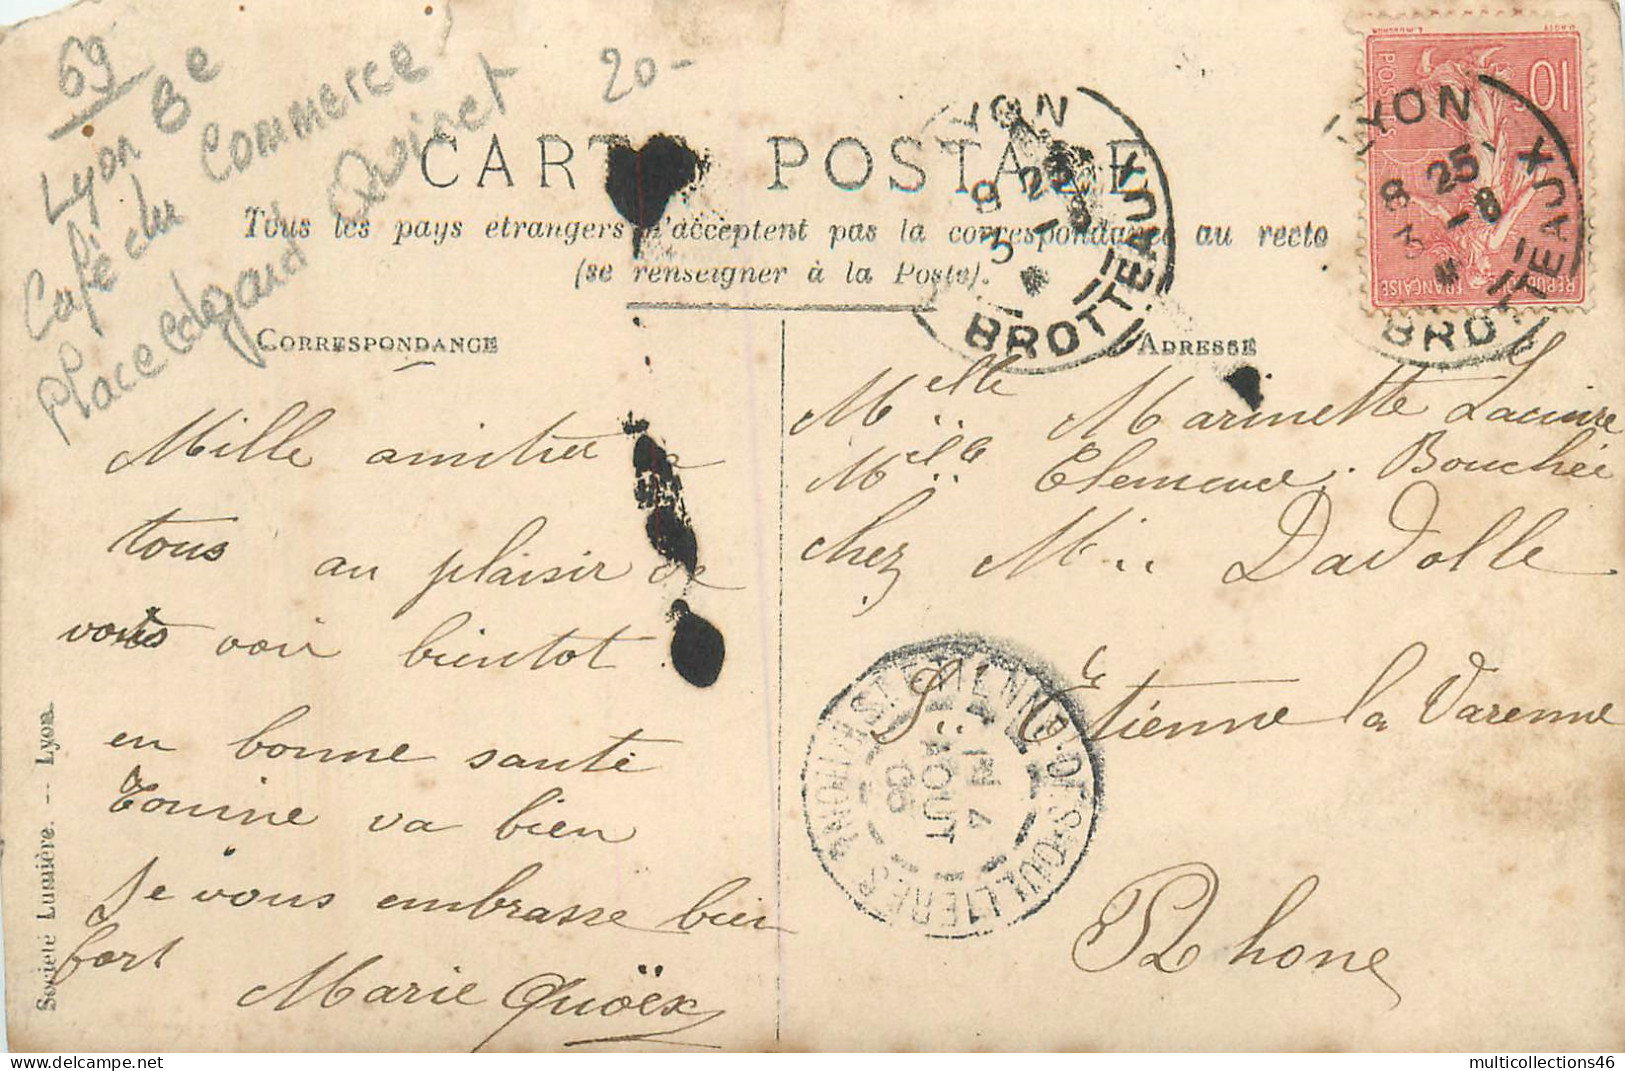 69
Lyon 3e
Café du Commerce
Place edgard Quinet
20-
CARTE POSTALE
Tous les pays etrangers n'acceptent pas la correspondance au recto
(se renseigner à la Poste).
CORRESPONDANCE
ADRESSE
LYON
8 25
3 -8
BROTTEAUX
LYON
8 25
3 -8
BROTTEAUX
10
POSTES
REPUBLIQUE FRANÇAISE
Mille amitié a
tous au plaisir de
vous voir bientot
en bonne santé
Tonine va bien
Je vous embrasse bien
fort
Marie Quoëx
Melle Marinette
Melle Clemence Bouchée
chez M Davolle
St Etienne la Varenne
Rhone
ST ETIENNE-DES-OULLIERES RHONE
4
AOUT
Société Lumière. — Lyon.
multicollections46